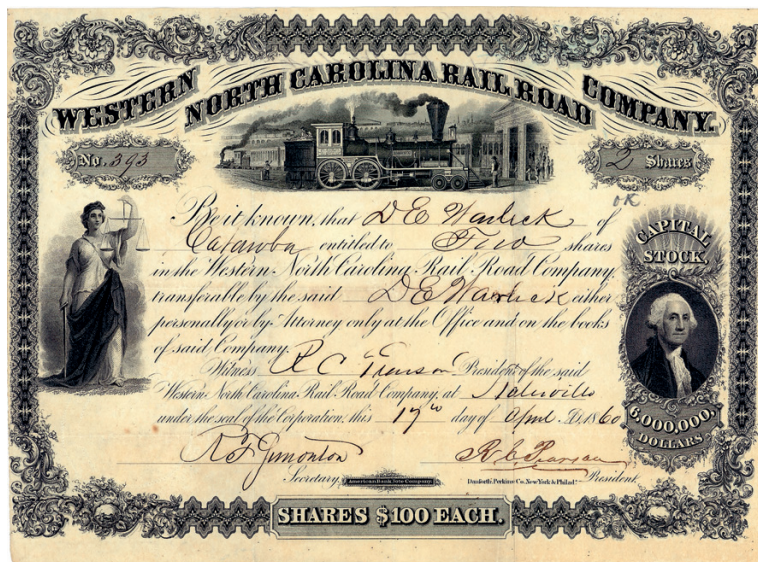 WESTERN NORTH CAROLINA RAIL ROAD COMPANY.
No. 393
2 Shares
OK
Be it known, that D E Warlick of
Catawba entitled to Two shares
in the Western North Carolina Rail Road Company
transferable by the said D E Warlick either
personally or by Attorney only at the Office and on the books
of said Company.
Witness R C Pearson President of the said
Western North Carolina Rail Road Company, at Statesville
under the seal of the Corporation, this 17th day of April A.D. 1860
CAPITAL
STOCK,
6,000,000.
DOLLARS.
R F Simonton
Secretary.
American Bank Note Company.
Danforth, Perkins & Co. New York & Philada.
R. C. Pearson
President
SHARES $100 EACH.